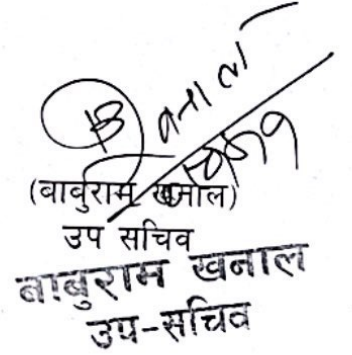 (बाबुराम खनाल)
उप सचिव
बाबुराम खनाल
उप-सचिव